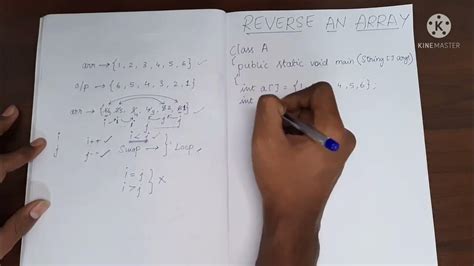 arr → {1, 2, 3, 4, 5, 6} ✓
o/p → {6, 5, 4, 3, 2, 1}
arr →
i i++ ✓ i < j ✓
j j-- ✓ Swap → } Loop.
i = j
i > j } X
REVERSE AN ARRAY
Class A
{ public static void main (String [] args)
{
int a[] = {1, 4, 5, 6};
int
KINEMASTER